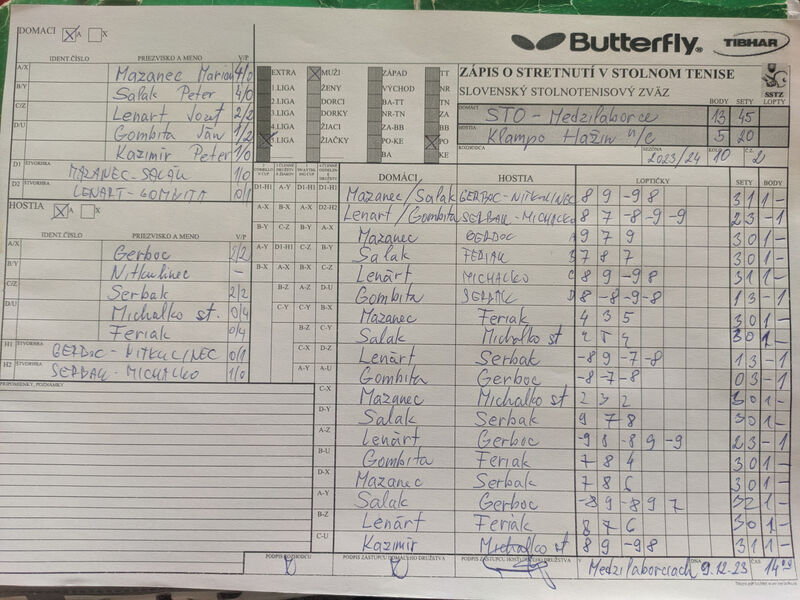 DOMÁCI A X
Butterfly TIBHAR
IDENT.ČÍSLO PRIEZVISKO A MENO V/P
A/X Mazanec Marian 4/0
B/Y Salak Peter 4/0
C/Z Lenart Jozef 2/2
D/U Gombita Ján 1/2
Kazimír Peter 1/0
D1 ŠTVORHRA MAZANEC-SALÁK 1/0
D2 ŠTVORHRA LENART-GOMBITA 0/1
EXTRA MUŽI ZÁPAD TT
1.LIGA ŽENY VÝCHOD NR
2.LIGA DORCI BA-TT TN
3.LIGA DORKY NR-TN ZA
4.LIGA ŽIACI ZA-BB BB
5.LIGA ŽIAČKY PO-KE PO
BA KE
ZÁPIS O STRETNUTÍ V STOLNOM TENISE
SLOVENSKÝ STOLNOTENISOVÝ ZVÄZ
SSTZ
BODY SETY LOPTY
DOMÁCI STO - Medzilaborce 13 45
HOSTIA Klampo Hažín n/C 5 20
ROZHODCA SEZÓNA 2023/24 KOLO 10 Č. 2
HOSTIA A X
IDENT.ČÍSLO PRIEZVISKO A MENO V/P
A/X Gerboc 2/2
B/Y Nitkulinec -
C/Z Serbak 2/2
D/U Michalko st. 0/4
Feriak 0/4
H1 ŠTVORHRA GERBOC-NITKULINEC 0/1
H2 ŠTVORHRA SERBAK-MICHALKO 1/0
PRIPOMIENKY, POZNÁMKY
DOMÁCI HOSTIA LOPTIČKY SETY BODY
D1-H1 A-Y D1-H1 D1-H1 Mazanec/Salak GERBOC-NITKULINEC 8 9 -9 8 3 1 1 -
A-X B-X A-X D2-H2 Lenart/Gombita SERBAK-MICHALKO 8 7 -8 -9 -9 2 3 - 1
B-Y C-Z B-Y A-X Mazanec GERBOC 9 7 9 3 0 1 -
A-Y D1-H1 C-Z B-Y Salak FERIAK 7 8 7 3 0 1 -
B-X A-X B-X C-Z Lenárt MICHALKO 8 9 -9 8 3 1 1 -
B-Z A-Z D-U Gombita SERBAK 8 -8 -9 -8 1 3 - 1
C-Y C-Y B-X Mazanec Feriak 4 3 5 3 0 1 -
Salak Michalko st 3 0 1 -
C-X D-Z Lenárt Serbak -8 9 -7 -8 1 3 - 1
A-Y A-U Gombita Gerboc -8 -7 -8 0 3 - 1
C-X Mazanec Michalko st 2 3 2 3 0 1 -
D-Y Salak Serbak 9 7 8 3 0 1 -
A-Z Lenárt Gerboc -9 8 -8 9 -9 2 3 - 1
B-U Gombita Feriak 7 8 4 3 0 1 -
D-X Mazanec Serbak 7 8 6 3 0 1 -
A-Y Salak Gerboc -8 9 -8 9 7 3 2 1 -
B-Z Lenárt Feriak 8 7 6 3 0 1 -
C-U Kazimír Michalko st 8 9 -9 8 3 1 1 -
PODPIS ROZHODCU PODPIS ZÁSTUPCU DOMÁCEHO DRUŽSTVA PODPIS ZÁSTUPCU HOSŤUJÚCEHO DRUŽSTVA V Medzilaborciach DŇA 9.12.23 ČAS 14:00